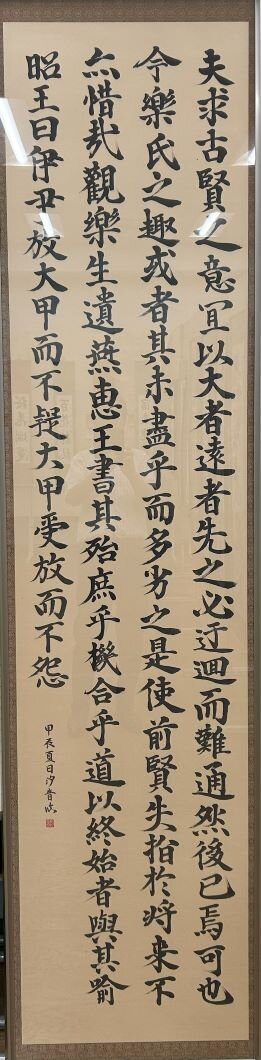 夫求古賢之意宜以大者遠者先之必迂迴而難通然後已焉可也
今樂氏之趣或者其未盡乎而多劣之是使前賢失指於将来不
亦惜哉觀樂生遺燕惠王書其殆庶乎機合乎道以終始者與其喻
昭王曰伊尹放大甲而不疑大甲受放而不怨
甲辰夏日汐音臨